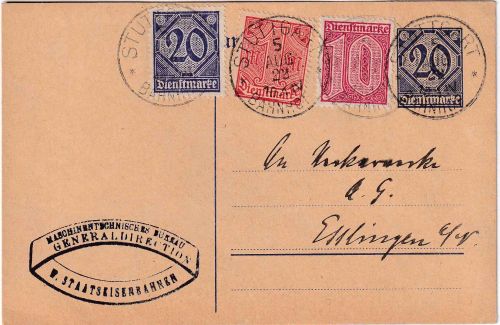 STUTTGART
20
Dienstmarke
BAHNHOF
STUTTGART
5
AUG
22
Dienstmarke
BAHNHOF
Dienstmarke
10
STUTTGART
20
Dienstmarke
An Neckarwerke
A. G.
Esslingen a/N.
MASCHINENTECHNISCHES BUREAU
GENERALDIRECTION
W. STAATSEISENBAHNEN